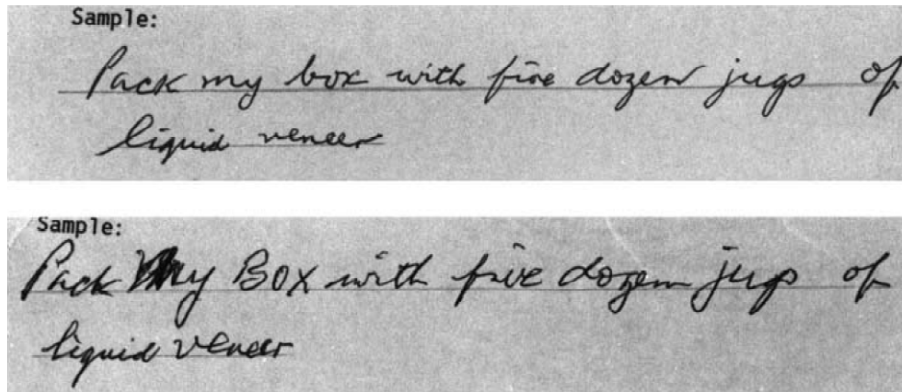 Sample:
Pack my box with five dozen jugs of
liquid veneer
Sample:
Pack My Box with five dozen jugs of
liquid veneer